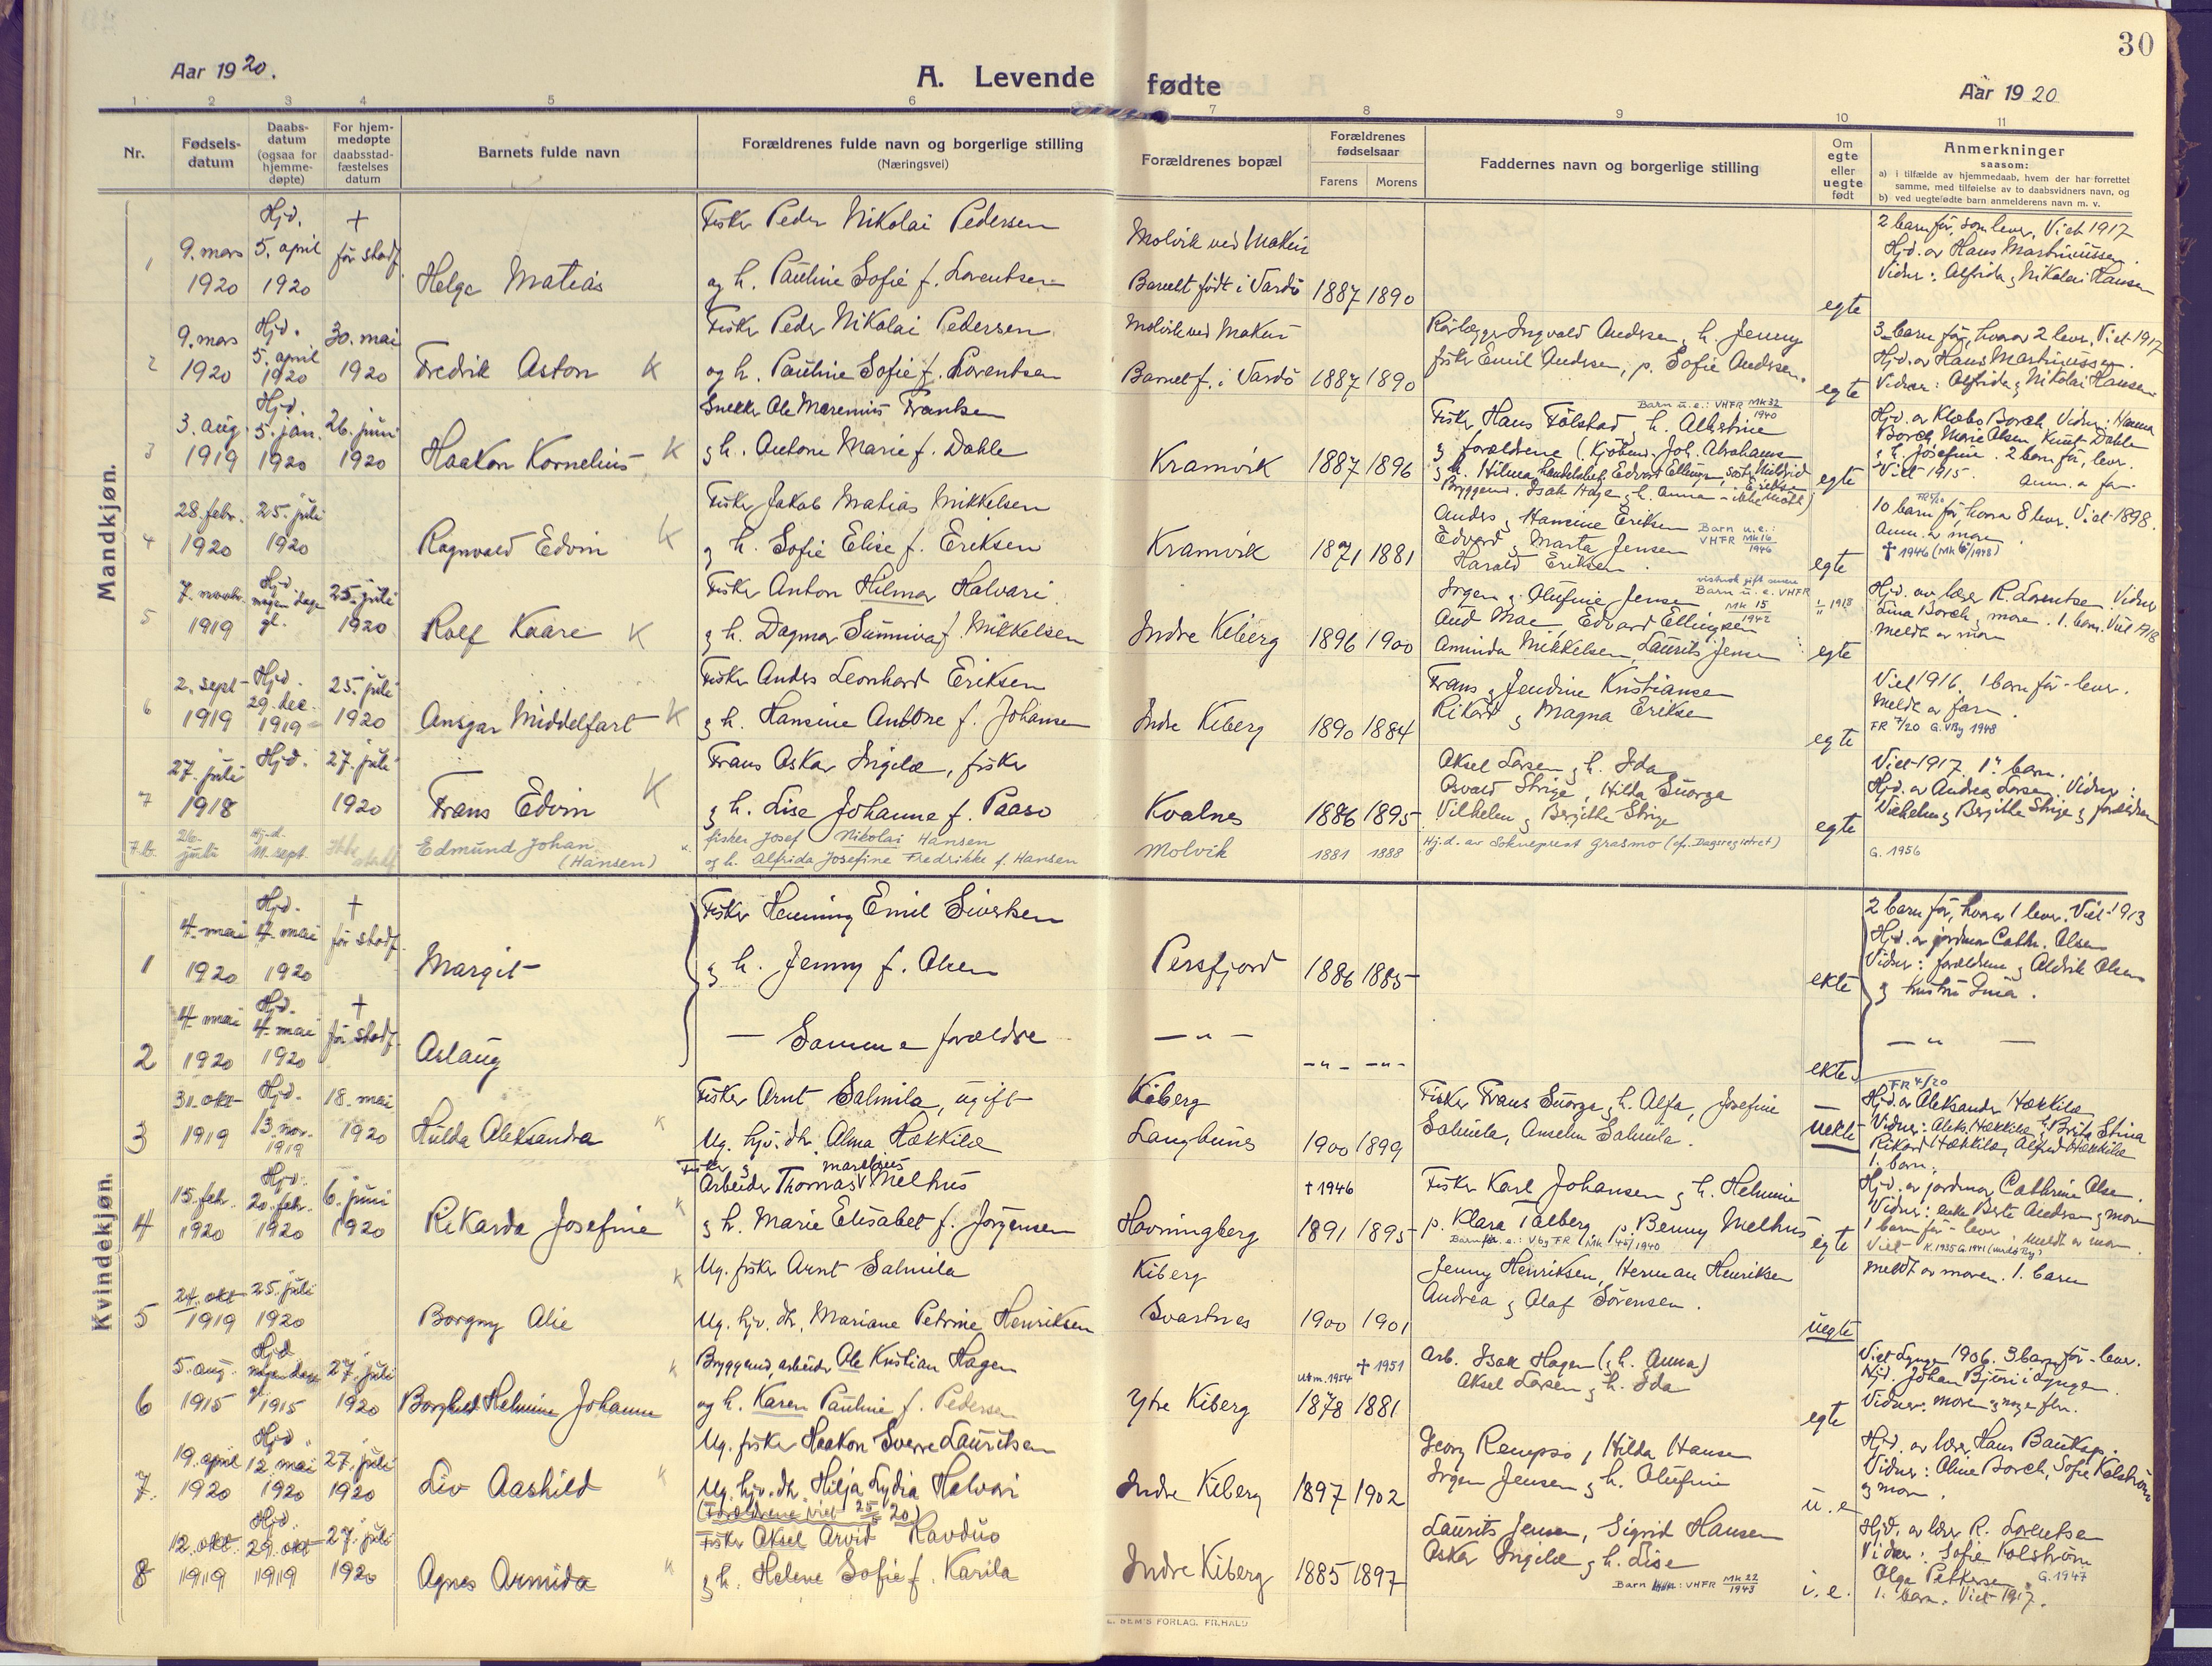 30
Aar 1920.
A. Levende fødte
Aar 1920
1 2 3 4 5 6 7 8 9 10 11
Nr.
Fødsels-
datum
Daabs-
datum
(ogsaa for
hjemme-
døpte)
For hjem-
medøpte
daabsstad-
fæstelses
datum
Barnets fulde navn
Forældrenes fulde navn og borgerlige stilling
(Næringsvei)
Forældrenes bopæl
Forældrenes
fødselsaar
Farens Morens
Faddernes navn og borgerlige stilling
Om
egte
eller
uegte
født
Anmerkninger
saasom:
a) i tilfælde av hjemmedaab, hvem der har forrettet
samme, med tilføielse av to daabsvidners navn, og
b) ved uegtefødte barn anmelderens navn m. v.
Mandkjøn.
1
9. mars
1920
Hjd.
5. april
1920
+
før stadf.
Helge Matias
Fisker Peder Nikolai Pedersen
og h. Pauline Sofie f. Lorentsen
Molvik ved Makur
Barnet født i Vardö
1887 1890
egte
2 barn før, som lever. Viet 1917
Hjd. av Hans Martinussen.
Vidner: Alfrida & Nikolai Hansen
2
9. mars
1920
Hjd.
5. april
1920
30. mai
1920
Fredrik Aston K
Fisker Peder Nikolai Pedersen
og h. Pauline Sofie f. Lorentsen
Molvik ved Makur
Barnet f. i Vardö
1887 1890
Ingvald Andersen & h. Jenny
fisker Emil Andersen, p. Sofie Andersen.
egte
3 barn før, hvorav 2 lever. Viet 1917
Hjd. av Hans Martinussen.
Vidner: Alfrida & Nikolai Hansen
3
3. aug.
1919
Hjd.
5. jan.
1920
26. juni
1920
Haakon Kornelius K
Snekker Ole Marenius Frantsen
& h. Antone Marie f. Dahle
Kramvik
1887 1896
Barn u.e.: VHFR Mk 32
1940
Fisker Hans Følstad & h. Albertine
& forældrene (Kjöbmd. Joh. Abrahams.
& h. Hilma,
egte
Borch, Marie Olsen, Knut Dahle
& h. Josefine. 2 barn før, lever.
Viet 1915. Anm. a far.
4
28. febr.
1920
25. juli
1920
Ragnvald Edvin K
Fisker Jakob Matias Mikkelsen
& h. Sofie Elise f. Eriksen
Kramvik
1871 1881
Anders & Hansine Eriksen
Edvard & Marta Jensen
Harald Eriksen.
Barn u.e.:
VHFR Mk 16
1946
egte
10 barn før, hvorav 8 lever. Viet 1898.
Anm. av mor.
† 1946
5
7. novbr.
1919
Hjd.
nogen dage
gl.
25. juli
1920
Rolf Kaare K
Fisker Anton Hilmar Halvari.
& h. Dagmar Sunniva f. Mikkelsen
Indre Kiberg
1896 1900
Jrgen & Olufine Jensen
Aud Mae, Edvard Ellingsen
Aminda Mikkelsen, Laurits Jensen
Barn u.e. VHFR
Mk 15
1942
egte
Hjd. av lærer R. Lorentsen. Vidner
Lina Borch & moren. 1. barn. Viet 1918
Meldt av mor
6
2. sept
1919
Hjd.
29. dec.
1919
25. juli
1920
Ansgar Middelfart K
Fisker Anders Leonhard Eriksen
& h. Hansine Antone f. Johansen
Indre Kiberg
1890 1884
Frans & Jendine Kristiansen
Rikard & Magna Eriksen
egte
Viet 1916. 1 barn før - lever.
Meldt av far.
FR 7/20 G. VBy 1948
7
27. juli
1918
Hjd.
27. juli
1920
Frans Edvin K
Frans Oskar Ingilæ, fisker
& h. Lise Johanne f. Paaso
Kvalnes
1886 1895
Aksel Larsen & h. Ida
Osvald Strige, Hilda Suorza
Vilhelm & Berjitte Strige
egte
Viet 1917. 1. barn.
Hjd. av Andreas Larsen. Vidner:
Vilhelm & Berjitte Strige & forældrene
7.b.
26.
juli
Hj.d.
11. sept.
Ikke
stadf.
Edmund Johan
(Hansen)
fisker Josef Nikolai Hansen
og h. Alfrida Josefine Fredrikke f. Hansen
Molvik
1881 1888
Hj.d. av Sokneprest Grasmo (cf. Dagsregistret)
G. 1956
Kvindekjøn.
1
4. mai
1920
Hjd.
4. mai
1920
+
før stadf.
Margit
Fisker Henning Emil Sivertsen
& h. Jenny f. Olsen
Persfjord
1886 1885
ekte
2 barn før, hvorav 1 lever. Viet 1913
Hjd. av jordmor Cath. Olsen
Vidner: forældrene & Aldrik Olsen
& hustru Lina.
2
4. mai
1920
Hjd.
4. mai
1920
+
før stadf.
Aslaug
— Samme forældre
— " —
-"- -"-
ekte
— " —
3
31. okt
1919
Hjd.
13. nov.
1919
18. mai
1920
Hulda Aleksandra K
Fisker Arnt Salmila, ugift
Ug. hjv. dtr. Alma Hækkilæ
Kiberg
Langbunes
1900 1899
Fisker Frans Suorza & h. Alfa, Josefine
Salmila, Anselm Salmila.
uekte
FR 4/20
Hjd. av Aleksander Hækkilæ
Vidner: Aleks. Hækkilæ, Brita Stina
Rikard Hækkilæ, Alfred Hækkilæ
1. barn.
4
15. febr.
1920
Hjd.
20. febr.
1920
6. juni
1920
Rikarda Josefine K
Fisker &
Arbeider Thomas Marelius Melhus
& h. Marie Elisabet f. Jörgensen
Havningberg
† 1946
1891 1895
Fisker Karl Johansen & h. Helmine
p. Klara Talberg, p. Benny Melhus
egte
Hjd. av jordmor Cathrine Olsen.
Vidner: enke Berte Andersen & mor
1 barn før - lever. Meldt av mor.
Viet
5
24. okt
1919
25. juli
1920
Borgny Alie K
Ug. fisker Arnt Salmila
Ug. hjv. dtr. Mariane Petrine Henriksen
Kiberg
Svartnes
1900 1901
Jenny Henriksen, Herman Henriksen
Andrea & Olaf Sörensen.
uegte
Meldt av moren. 1. barn
6
5. aug.
1915
Hjd
nogen dage
gl. 1915
27. juli
1920
Borghild Helmine Johanne K
Bryggemd, arbeider Ole Kristian Hagen
og h. Karen Pauline f. Pedersen
Ytre Kiberg
utm. 1954 † 1951
1878 1881
Arb. Isak Hagen (& h. Anna)
Aksel Larsen & h. Ida
egte
Viet Lyngen 1906. 3 barn før - lever.
Hjd. Johan Björi i Lyngen.
Vidner: moren & nogen fler.
7.
19. april
1920
Hjd.
12. mai
1920
27. juli
1920
Liv Aashild K
Ug. fisker Haakon Sverre Lauritsen
Ug. hjv. dtr. Hilja Lydia Halvari
(Forældrene viet 25/5 20)
Indre Kiberg
1897 1902
Georg Rempso, Hilda Hansen
Jrgen Jensen & h. Olufine
u. e
Hjd. av lærer Hans Bauksp.
Vidner: Oline Borch, Sofie Kolström
& mor.
8
12. okt.
1919
Hjd.
29. okt
1919
27. juli
1920
Agnes Armida K
Fisker Aksel Arvid Ravduo
& h. Helene Sofie f. Karila
Indre Kiberg
1885 1897
Laurits Jensen, Sigrid Hansen
Oskar Ingilæ & h. Lise
VHFR Mk 22
1943
i. e.
Hjd. av lærer R. Lorentsen
Vidner: Sofie Kolström
Olga Pettersen. G. 1947
1. barn. Viet 1917.
E. SEM'S FORLAG, FR.HALD